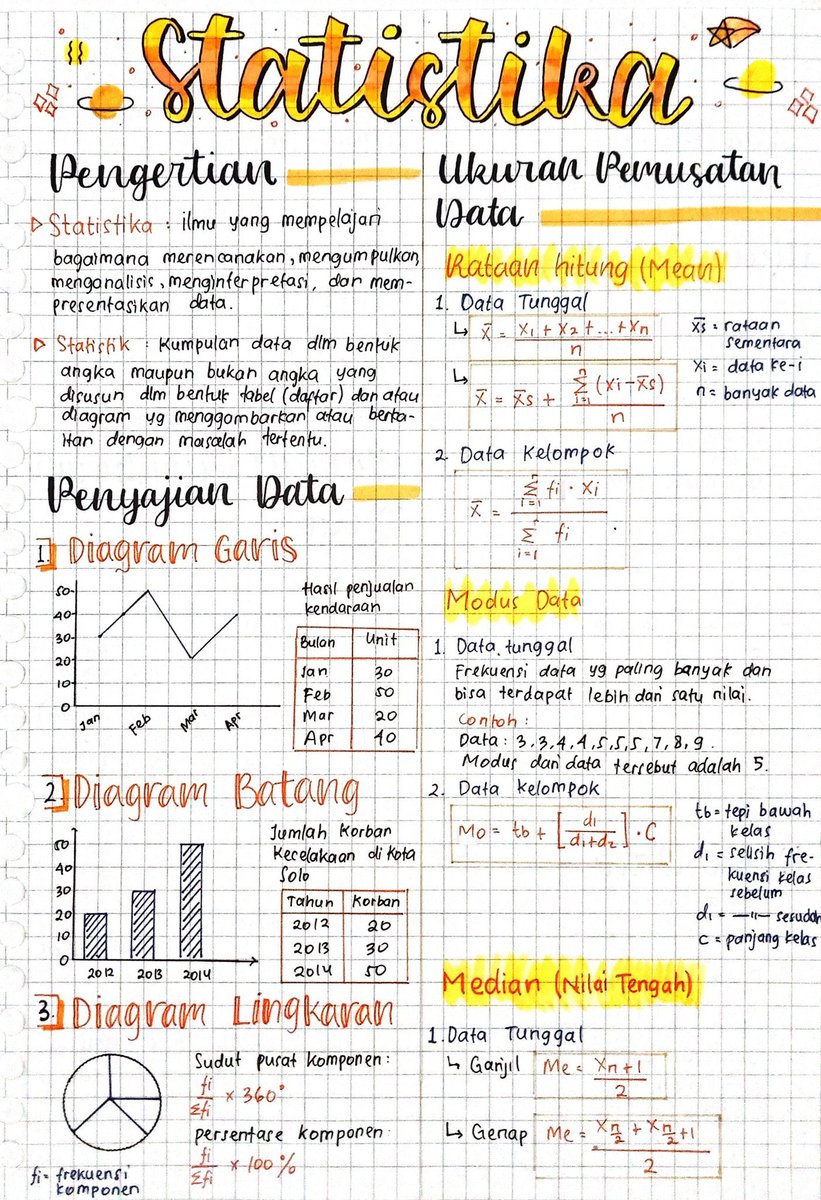 Statistika
Pengertian
▷ Statistika : ilmu yang mempelajari
bagaimana merencanakan, mengumpulkan,
menganalisis, menginterpretasi, dan mem-
presentasikan data.
▷ Statistik : Kumpulan data dlm bentuk
angka maupun bukan angka yang
disusun dlm bentuk tabel (daftar) dan atau
diagram yg menggambarkan atau berka-
itan dengan masalah tertentu.
Penyajian Data
1. Diagram Garis
50
40
30
20
10
0
Jan Feb Mar Apr
Hasil penjualan
kendaraan
Bulan Unit
Jan 30
Feb 50
Mar 20
Apr 40
2. Diagram Batang
50
40
30
20
10
0
2012 2013 2014
Jumlah Korban
Kecelakaan di Kota
Solo
Tahun Korban
2012 20
2013 30
2014 50
3. Diagram Lingkaran
Sudut pusat komponen:
fi/Σfi × 360°
persentase komponen:
fi/Σfi × 100%
fi = frekuensi
komponen
Ukuran Pemusatan
Data
Rataan hitung (Mean)
1. Data Tunggal
↳ x̄ = (x₁ + x₂ + ... + xn)/n
↳ x̄ = x̄s + (Σ i=1 n (xi - x̄s))/n
x̄s = rataan
sementara
xi = data ke-i
n = banyak data
2. Data Kelompok
x̄ = (Σ i=1 n fi · xi)/(Σ i=1 fi)
Modus Data
1. Data tunggal
Frekuensi data yg paling banyak dan
bisa terdapat lebih dari satu nilai.
Contoh :
Data : 3,3,4,4,5,5,5,7,8,9.
Modus dari data tersebut adalah 5.
2. Data kelompok
Mo = tb + [d₁/(d₁+d₂)] · C
tb = tepi bawah
kelas
d₁ = selisih fre-
kuensi kelas
sebelum
d₁ = —"— sesudah
c = panjang kelas
Median (Nilai Tengah)
1. Data Tunggal
↳ Ganjil Me = Xn+1/2
↳ Genap Me = (X n/2 + X n/2 +1)/2